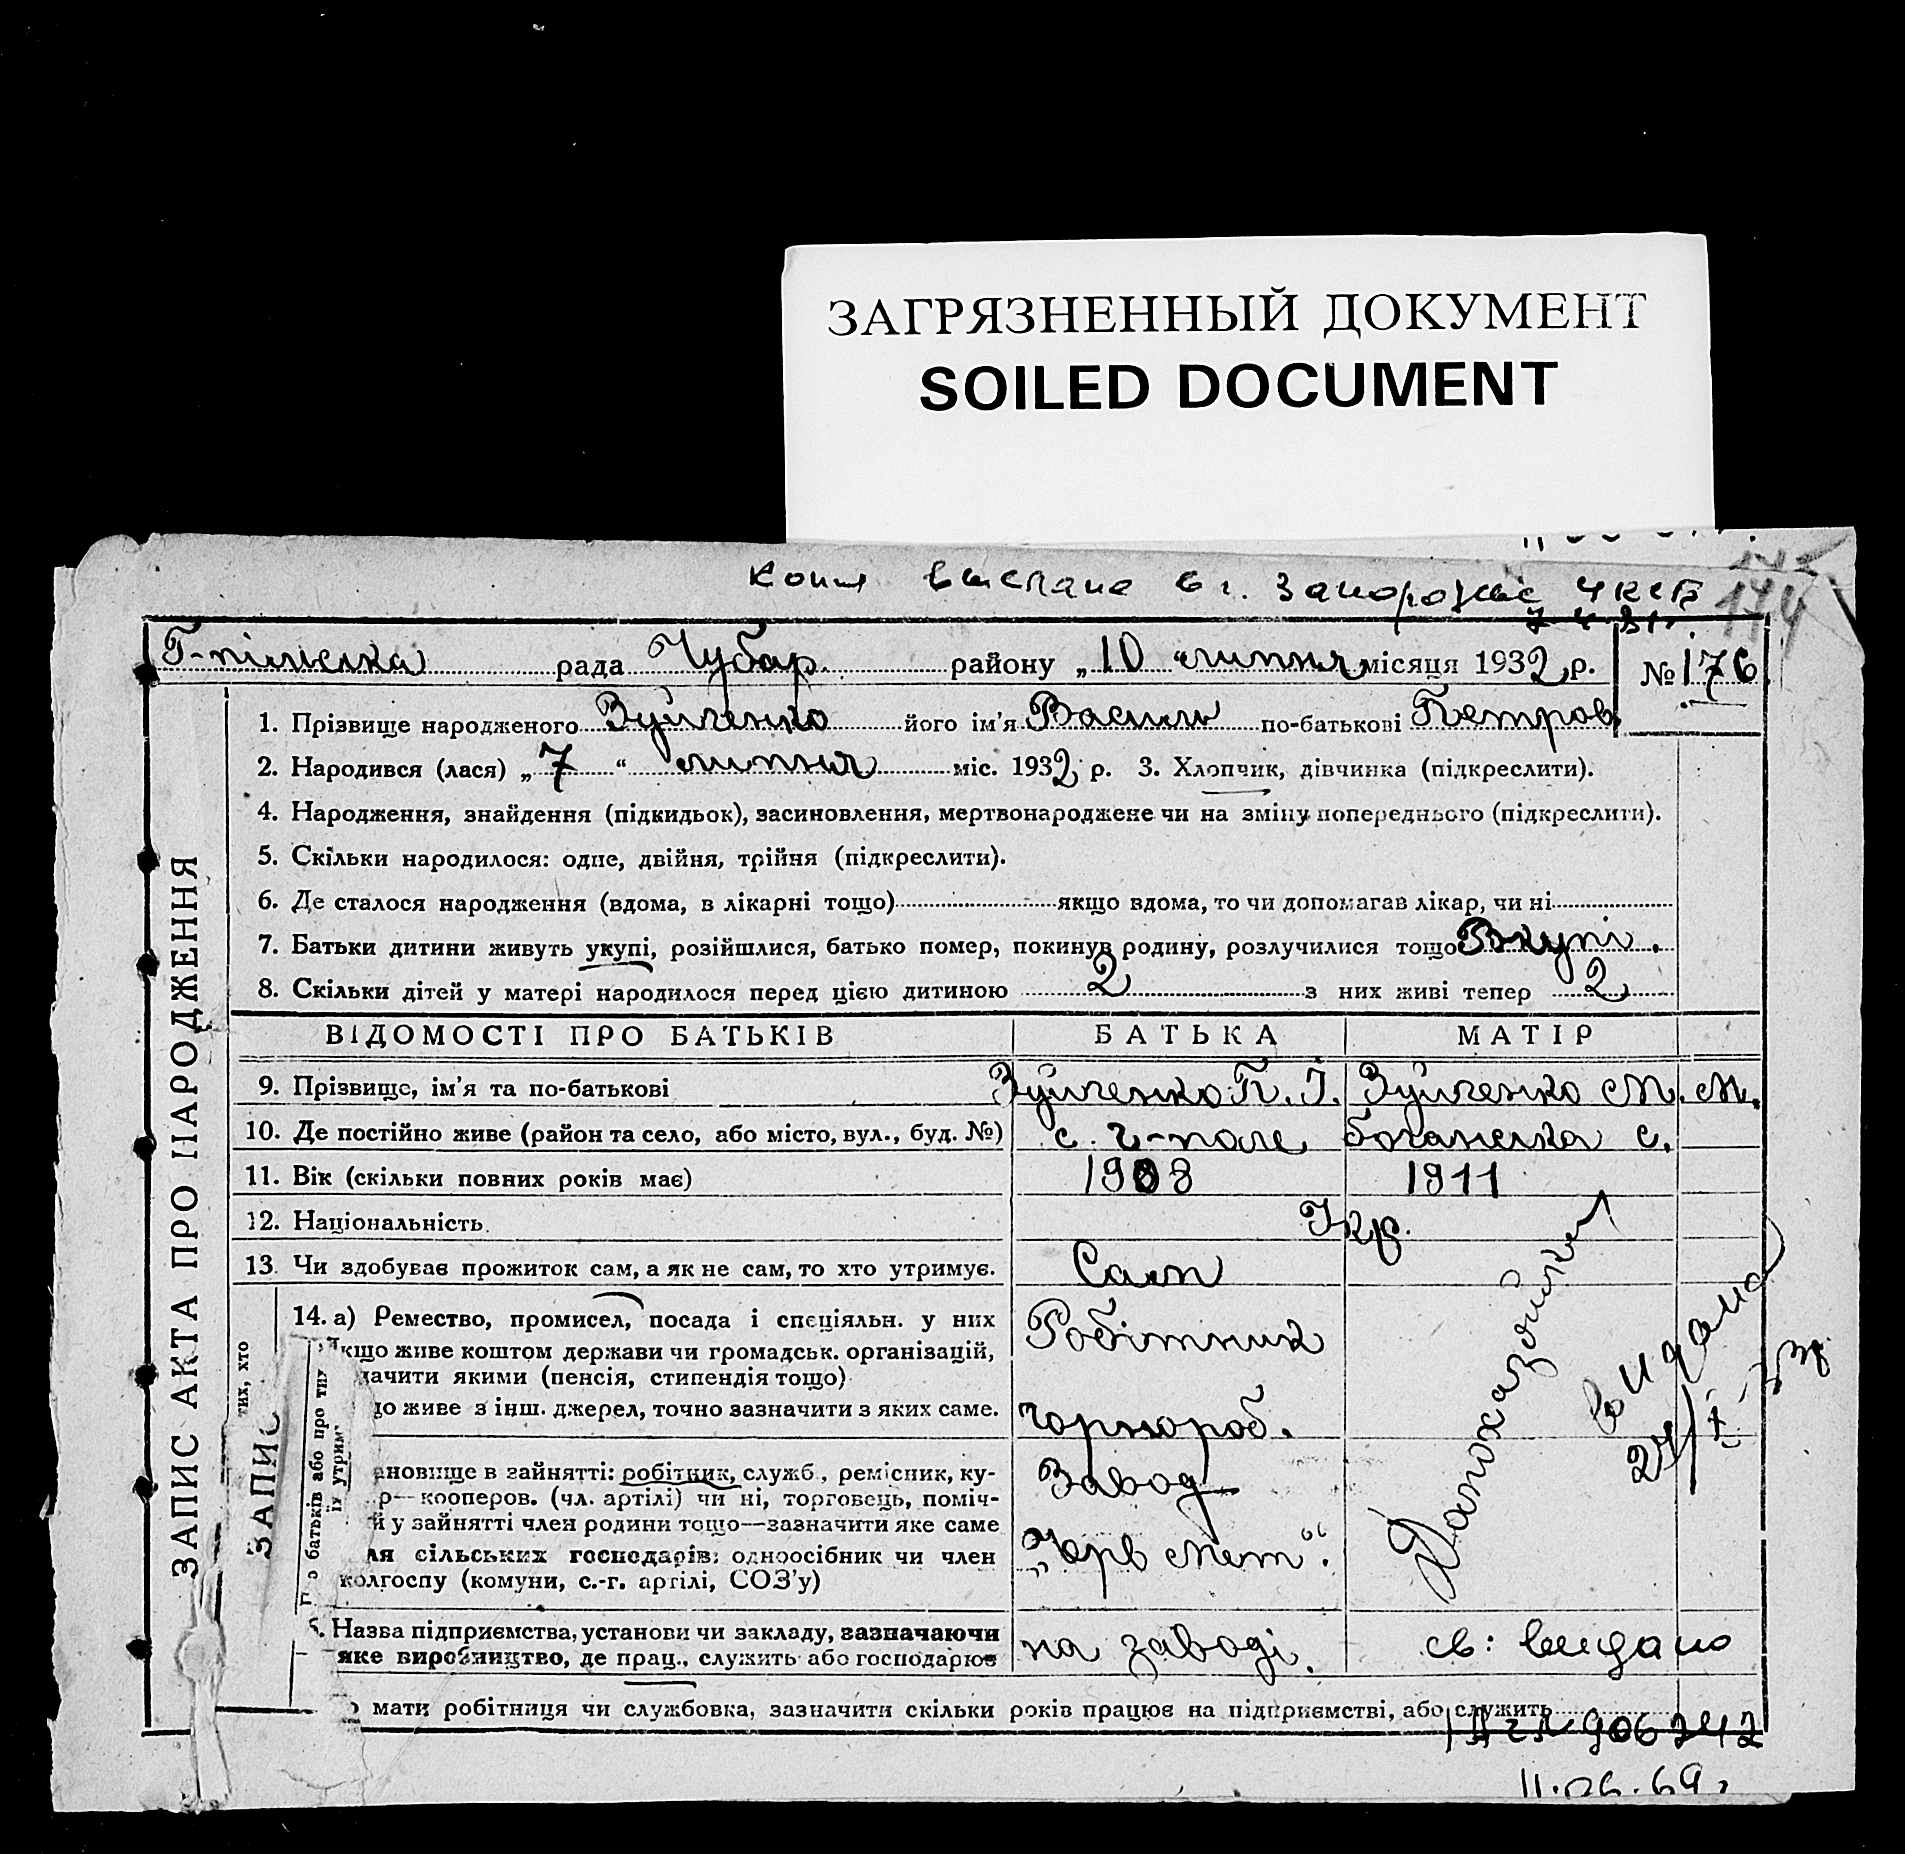 ЗАГРЯЗНЕННЫЙ ДОКУМЕНТ
SOILED DOCUMENT
копия выслана в г. Запорожье
7.4.81г.
174
Г-пільська рада Чубар. району „10“ липня місяця 1932 р. № 176
1. Прізвище народженого Зуйченко його ім'я Василь по-батькові Петров.
2. Народився (лася) „7“ липня міс. 1932 р. 3. Хлопчик, дівчинка (підкреслити).
4. Народження, знайдення (підкидьок), засиновлення, мертвонароджене чи на зміну попереднього (підкреслити).
5. Скільки народилося: одне, двійня, трійня (підкреслити).
6. Де сталося народження (вдома, в лікарні тощо) якщо вдома, то чи допомагав лікар, чи ні
7. Батьки дитини живуть укупі, розійшлися, батько помер, покинув родину, розлучилися тощо Вкупі.
8. Скільки дітей у матері народилося перед цією дитиною 2 з них живі тепер 2
ВІДОМОСТІ ПРО БАТЬКІВ БАТЬКА МАТІР
9. Прізвище, ім'я та по-батькові Зуйченко П. І. Зуйченко М. М.
10. Де постійно живе (район та село, або місто, вул., буд. №) с. Г-поле с.
11. Вік (скільки повних років має) 1908 1911
12. Національність. Укр.
13. Чи здобуває прожиток сам, а як не сам, то хто утримує. Сам
14. а) Ремество, промисел, посада і спеціяльн. у них Робітник
Якщо живе коштом держави чи громадськ. організацій,
начити якими (пенсія, стипендія тощо)
що живе з інш. джерел, точно зазначити з яких саме. Чорнороб.
ановище в зайнятті: робітник, служб., ремісник, ку- Завод
р—кооперов. (чл. артілі) чи ні, торговець, поміч-
й у зайнятті член родини тощо—зазначити яке саме
ля сільських господарів: одноосібник чи член „Черв Мет“.
колгоспу (комуни, с.-г. артілі, СОЗ'у)
5. Назва підприємства, установи чи закладу, зазначаючи на заводі.
яке виробництво, де прац., служить або господарює
мати робітниця чи службовка, зазначити скільки років працює на підприємстві, або служить
Домохазяйка
видана
св: видано
906242
11.06.69г
ЗАПИС АКТА ПРО НАРОДЖЕННЯ
ЗАПИС
тих, хто
батьків або про ти
їх утрим